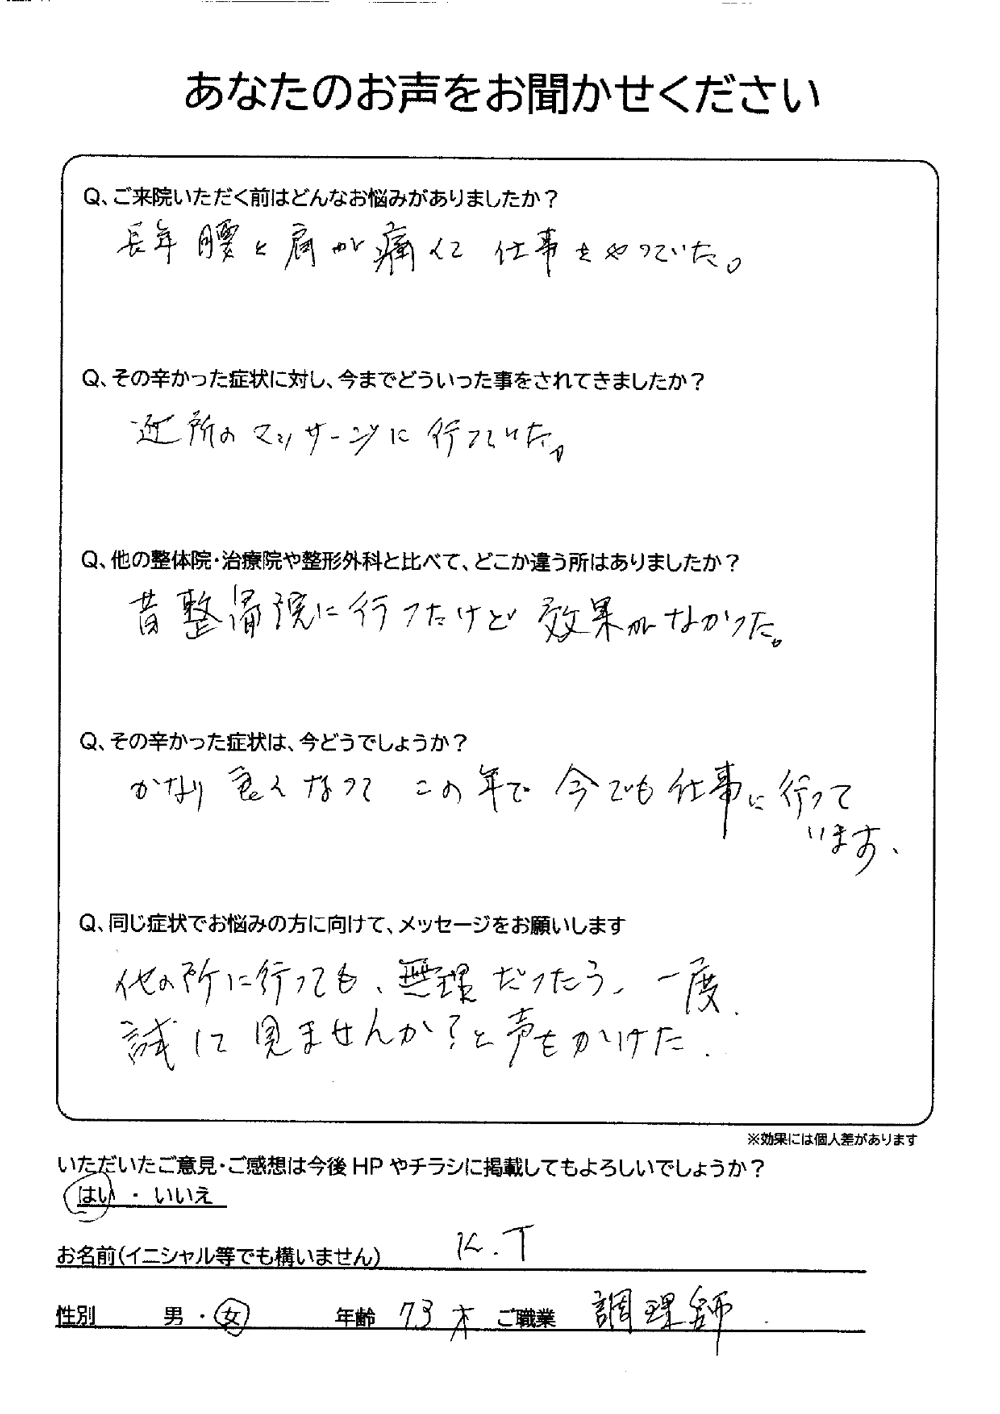 あなたのお声をお聞かせください
Q、ご来院いただく前はどんなお悩みがありましたか？
長年腰と肩が痛くて 仕事をやっていた。
Q、その辛かった症状に対し、今までどういった事をされてきましたか？
近所のマッサージに行っていた。
Q、他の整体院・治療院や整形外科と比べて、どこか違う所はありましたか？
昔整骨院に行ったけど 効果がなかった。
Q、その辛かった症状は、今どうでしょうか？
かなり良くなって この年で 今でも仕事に行って
います、
Q、同じ症状でお悩みの方に向けて、メッセージをお願いします
他の所に行っても、無理だったら、一度、
試して見ませんか？と声をかけた.
※効果には個人差があります
いただいたご意見・ご感想は今後HPやチラシに掲載してもよろしいでしょうか？
はい ・ いいえ
お名前（イニシャル等でも構いません） K.T
性別 男・女 年齢 73才 ご職業 調理師